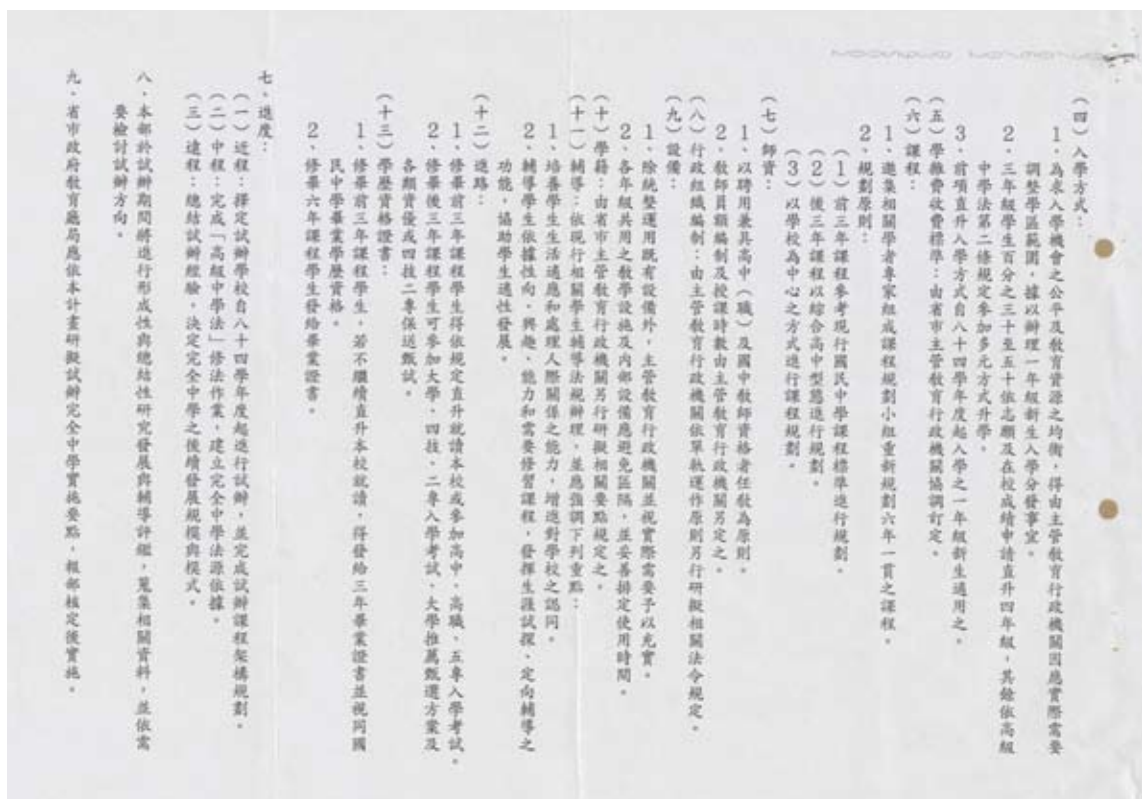 (四)入學方式:
1、為求入學機會之公平及教育資源之均衡,得由主管教育行政機關因應實際需要
調整學區範圍,據以辦理一年級新生入學分發事宜。
2、三年級學生百分之三十至五十依志願及在校成績申請直升四年級,其餘依高級
中學法第二條規定參加多元方式升學。
3、前項直升入學方式自八十四學年度起入學之一年級新生適用之。
(五)學雜費收費標準:由省市主管教育行政機關協調訂定。
(六)課程:
1、遴集相關學者專家組成課程規劃小組重新規劃六年一貫之課程。
2、規劃原則:
(1)前三年課程參考現行國民中學課程標準進行規劃。
(2)後三年課程以綜合高中型態進行規劃。
(3)以學校為中心之方式進行課程規劃。
(七)師資:
1、以聘用兼具高中(職)及國中教師資格者任教為原則。
2、教師員額編制及授課時數由主管教育行政機關另定之。
(八)行政組織編制:由主管教育行政機關依單軌運作原則另行研擬相關法令規定。
(九)設備:
1、除統整運用既有設備外,主管教育行政機關並視實際需要予以充實。
2、各年級共用之教學設施及內部設備應避免區隔,並妥善排定使用時間。
(十)學籍:由省市主管教育行政機關另行研擬相關要點規定之。
(十一)輔導:依現行相關學生輔導法規辦理,並應強調下列重點:
1、培養學生生活適應和處理人際關係之能力,增進對學校之認同。
2、輔導學生依據性向、興趣、能力和需要修習課程,發揮生涯試探、定向輔導之
功能,協助學生適性發展。
(十二)進路:
1、修畢前三年課程學生得依規定直升就讀本校或參加高中、高職、五專入學考試。
2、修畢後三年課程學生可參加大學、四技、二專入學考試、大學推薦甄選方案及
各類資優或四技二專保送甄試。
(十三)學歷資格證書:
1、修畢前三年課程學生,若不繼續直升本校就讀,得發給三年畢業證書並視同國
民中學畢業學歷資格。
2、修畢六年課程學生發給畢業證書。
七、進度:
(一)近程:擇定試辦學校自八十四學年度起進行試辦,並完成試辦課程架構規劃。
(二)中程:完成「高級中學法」修法作業,建立完全中學法源依據。
(三)遠程:總結試辦經驗,決定完全中學之後續發展規模與模式。
八、本部於試辦期間將進行形成性與總結性研究發展與輔導評鑑,蒐集相關資料,並依需
要檢討試辦方向。
九、省市政府教育廳局應依本計畫研擬試辦完全中學實施要點,報部核定後實施。